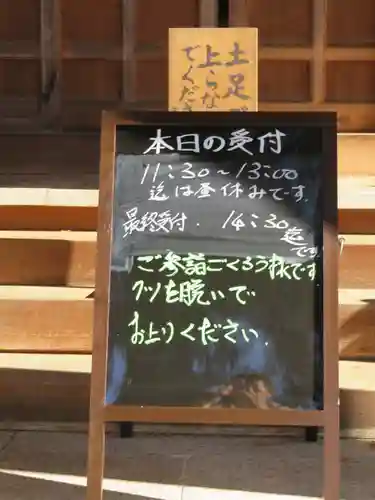 土足で
上らない
でください
本日の受付
11:30〜13:00
迄は昼休みです
最終受付. 14:30迄
です
ご参詣ごくろう様です
クツを脱いで
お上りください.